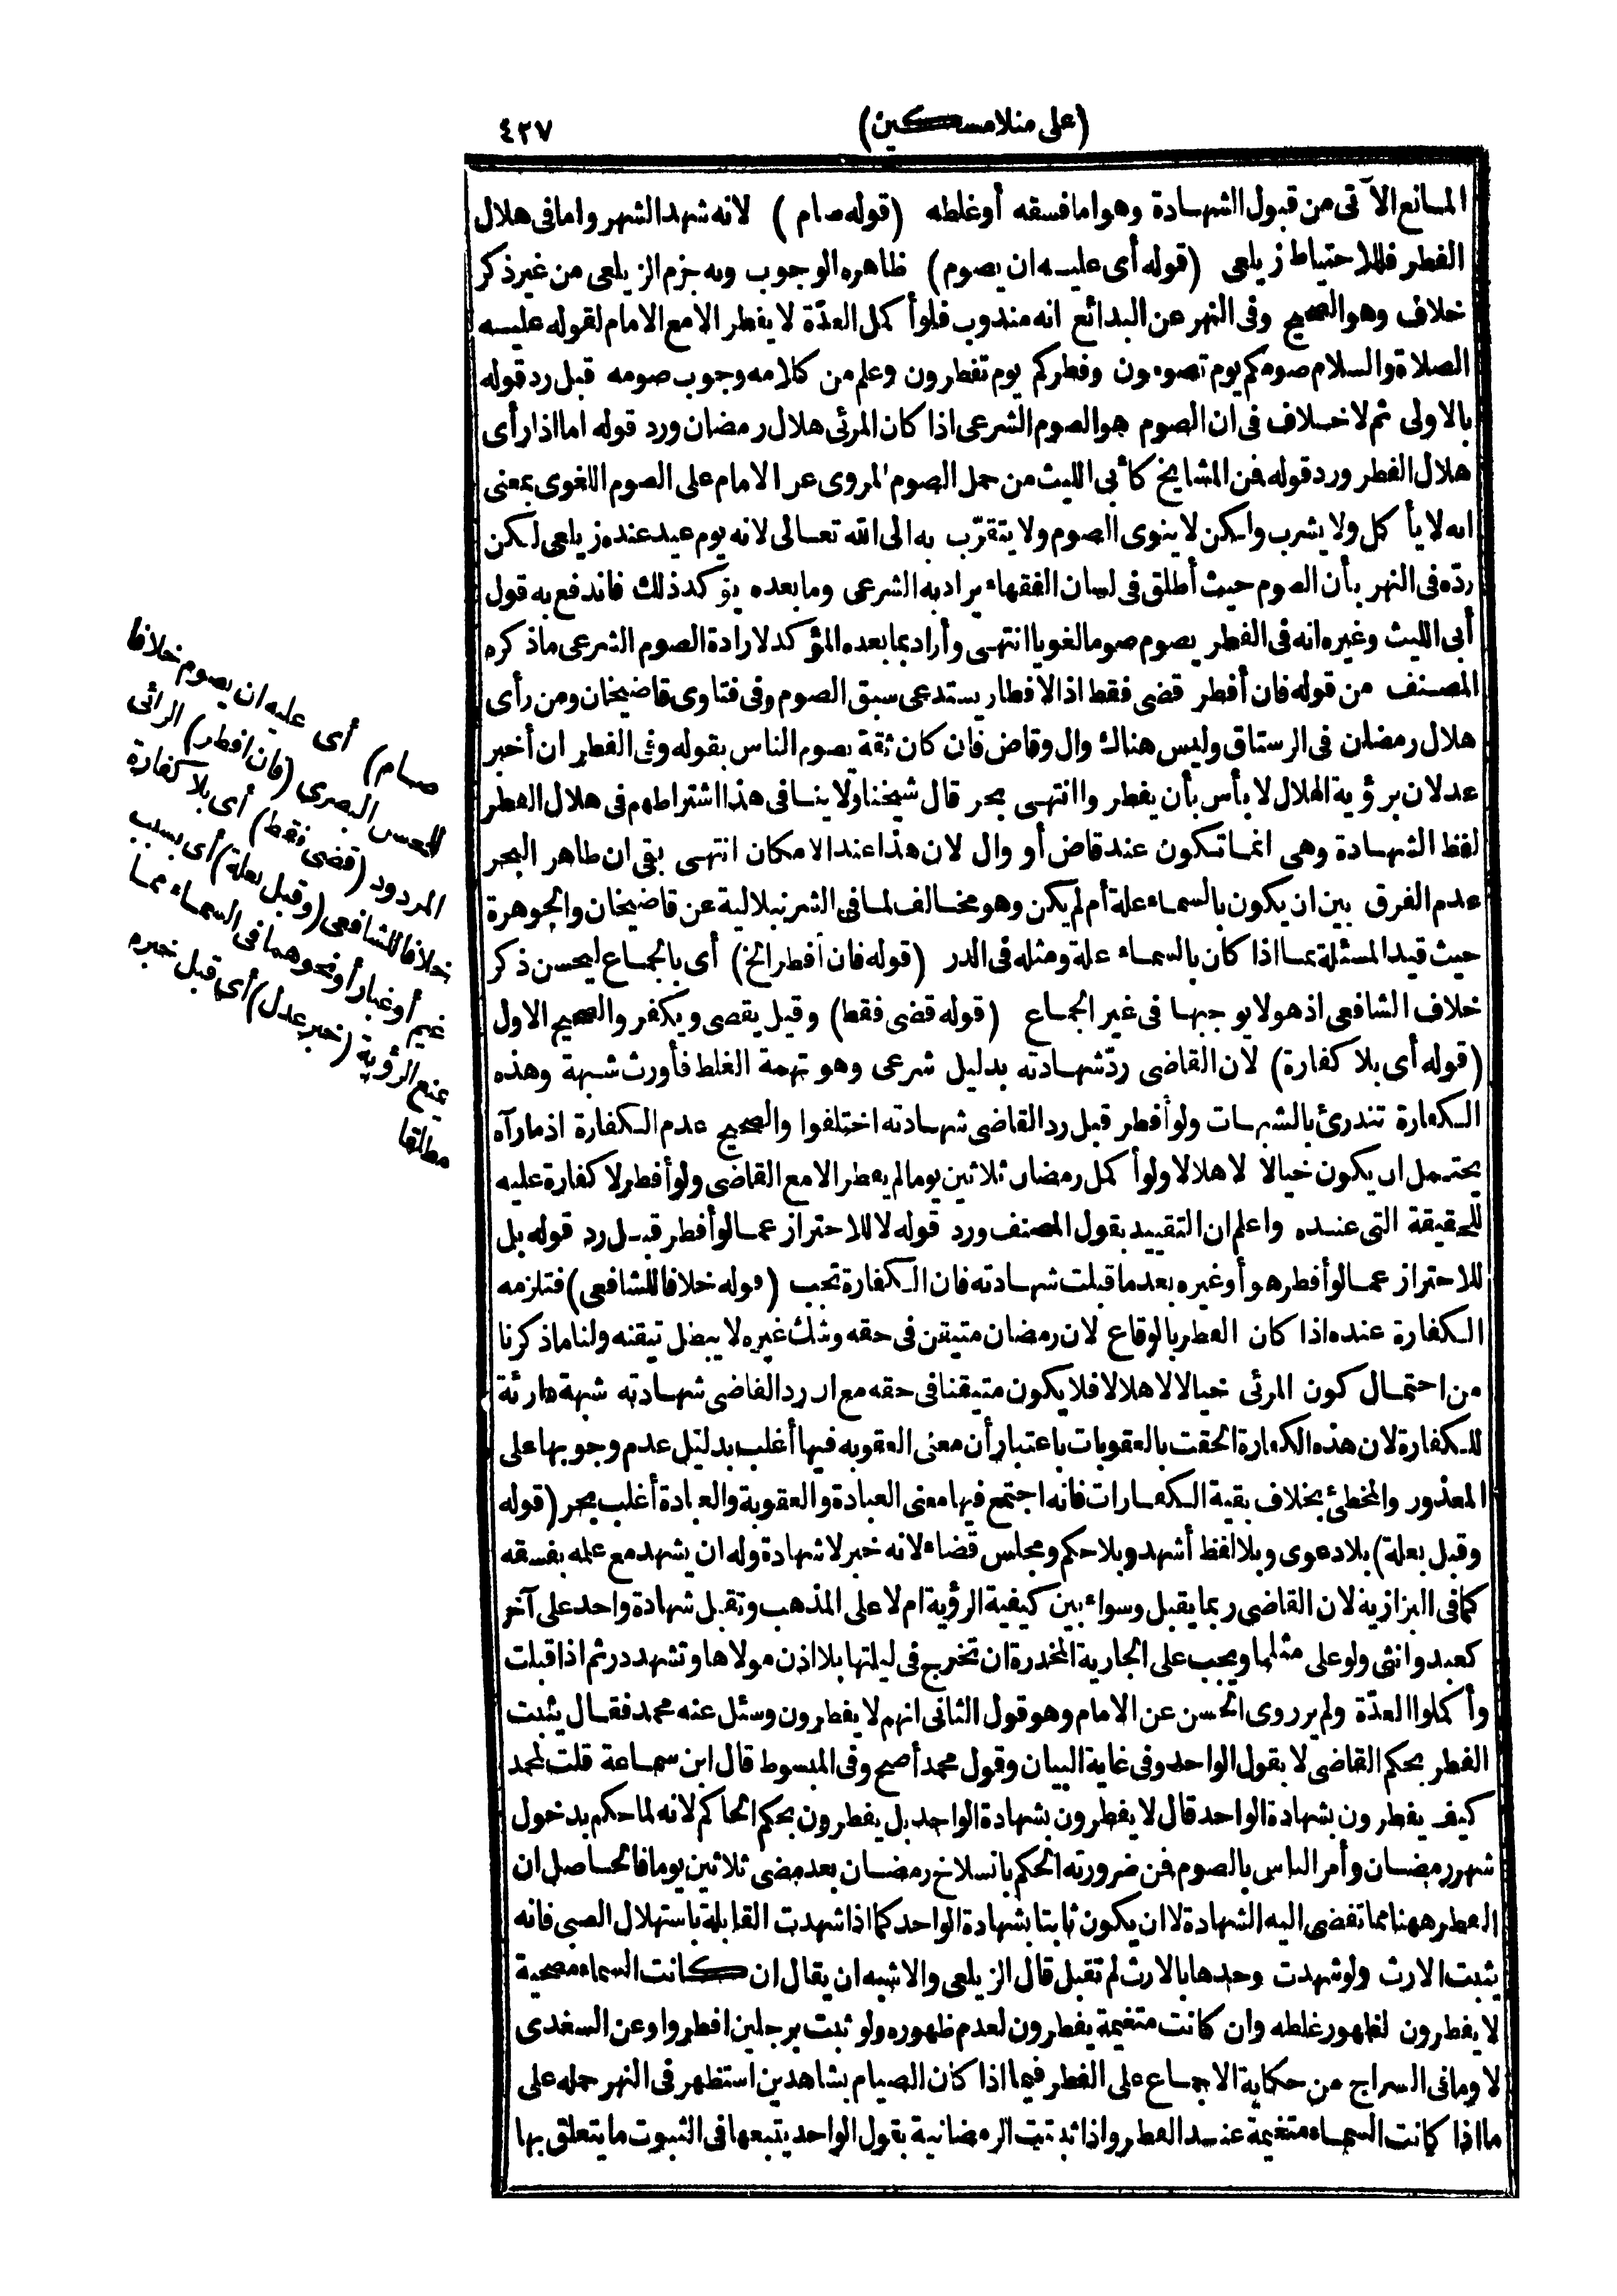 (على منلا مسكين) ٤٢٧
المانع الآتى من قبول الشهادة وهو اما فسقه أو غلطه (قوله صام) لانه شهد الشهر واما فى هلال
الفطر فللاحتياط زيلعى (قوله أى عليه ان يصوم) ظاهره الوجوب وبه جزم الزيلعى من غير ذكر
خلاف وهو الصحيح وفى النهر عن البدائع انه مندوب فلو أكمل العدّة لا يفطر الا مع الامام لقوله عليه
الصلاة والسلام صومكم يوم تصومون وفطركم يوم تفطرون وعلم من كلامه وجوب صومه قبل رد قوله
بالاولى ثم لا خلاف فى ان الصوم هو الصوم الشرعى اذا كان المرئى هلال رمضان ورد قوله اما اذا رأى
هلال الفطر ورد قوله فمن المشايخ كأبى الليث من حمل الصوم المروى عن الامام على الصوم اللغوى بمعنى
انه لا يأكل ولا يشرب ولكن لا ينوى الصوم ولا يتقرّب به الى الله تعالى لانه يوم عيد عنده زيلعى لكن
ردّه فى النهر بأن الصوم حيث أطلق فى لسان الفقهاء يراد به الشرعى وما بعده يؤكد ذلك فاندفع به قول
أبى الليث وغيره انه فى الفطر يصوم صوما لغويا انتهى وأراد بما بعده المؤكد لارادة الصوم الشرعى ما ذكره
المصنف من قوله فان أفطر قضى فقط اذ الافطار يستدعى سبق الصوم وفى فتاوى قاضيخان ومن رأى
هلال رمضان فى الرستاق وليس هناك وال وقاض فان كان ثقة يصوم الناس بقوله وفى الفطر ان أخبر
عدلان برؤية الهلال لا بأس بأن يفطروا انتهى بحر قال شيخنا ولا ينافى هذا اشتراطهم فى هلال الفطر
لفظ الشهادة وهى انما تكون عند قاض أو وال لان هذا عند الامكان انتهى بقى ان ظاهر البحر
عدم الفرق بين ان يكون بالسماء علة أم لم يكن وهو مخالف لما فى الشرنبلالية عن قاضيخان والجوهرة
حيث قيد المسئلة بما اذا كان بالسماء علة ومثله فى الدر (قوله فان أفطر الخ) أى بالجماع ليحسن ذكر
خلاف الشافعى اذ هو لا يوجبها فى غير الجماع (قوله قضى فقط) وقيل يقضى ويكفر والصحيح الاول
(قوله أى بلا كفارة) لان القاضى ردّ شهادته بدليل شرعى وهو تهمة الغلط فأورث شبهة وهذه
الكفارة تندرئ بالشبهات ولو أفطر قبل رد القاضى شهادته اختلفوا والصحيح عدم الكفارة اذ ما رآه
يحتمل ان يكون خيالا لا هلالا ولو أكمل رمضان ثلاثين يوما لم يفطر الا مع القاضى ولو أفطر لا كفارة عليه
للحقيقة التى عنده واعلم ان التقييد بقول المصنف ورد قوله لا للاحتراز عما لو أفطر قبل رد قوله بل
للاحتراز عما لو أفطر هو أو غيره بعد ما قبلت شهادته فان الكفارة تجب (قوله خلافا للشافعى) فتلزمه
الكفارة عنده اذا كان الفطر بالوقاع لان رمضان متيقن فى حقه وشك غيره لا يبطل تيقنه ولنا ما ذكرنا
من احتمال كون المرئى خيالا لا هلالا فلا يكون متيقنا فى حقه مع ان رد القاضى شهادته شبهة دارئة
للكفارة لان هذه الكفارة الحقت بالعقوبات باعتبار أن معنى العقوبة فيها أغلب بدليل عدم وجوبها على
المعذور والمخطئ بخلاف بقية الكفارات فانه اجتمع فيها معنى العبادة والعقوبة والعبادة أغلب بحر (قوله
وقبل بعلة) بلا دعوى وبلا لفظ أشهد وبلا حكم ومجلس قضاء لانه خبر لا شهادة وله ان يشهد مع علمه بفسقه
كما فى البزازية لان القاضى ربما يقبل وسواء بين كيفية الرؤية ام لا على المذهب وتقبل شهادة واحد على آخر
كعبد وانثى ولو على مثلهما ويجب على الجارية المخدرة ان تخرج فى ليلتها بلا اذن مولاها وتشهد در ثم اذا قبلت
وأكملوا العدّة ولم ير روى الحسن عن الامام وهو قول الثانى انهم لا يفطرون وسئل عنه محمد فقال يثبت
الفطر بحكم القاضى لا بقول الواحد وفى غاية البيان وقول محمد أصح وفى المبسوط قال ابن سماعة قلت لمحمد
كيف يفطرون بشهادة الواحد قال لا يفطرون بشهادة الواحد بل يفطرون بحكم الحاكم لانه لما حكم بدخول
شهر رمضان وأمر الناس بالصوم فمن ضرورته الحكم بانسلاخ رمضان بعد مضى ثلاثين يوما فالحاصل ان
الفطر ههنا مما تفضى اليه الشهادة لا ان يكون ثابتا بشهادة الواحد كما اذا شهدت القابلة باستهلال الصبى فانه
يثبت الارث ولو شهدت وحدها بالارث لم تقبل قال الزيلعى والاشبه ان يقال ان كانت السماء مصحية
لا يفطرون لظهور غلطه وان كانت متغيمة يفطرون لعدم ظهوره ولو ثبت برجلين افطروا وعن السغدى
لا وما فى السراج من حكاية الاجماع على الفطر فيما اذا كان الصيام بشاهدين استظهر فى النهر حمله على
ما اذا كانت السماء متغيمة عند الفطر واذا ثبتت الرمضانية بقول الواحد يتبعها فى الثبوت ما يتعلق بها
صام) أى عليه ان يصوم خلافا
للحسن البصرى (فان افطر) الرائى
المردود (قضى فقط) أى بلا كفارة
خلافا للشافعى (وقبل بعلة) أى بسبب
غيم أو غبار أو نحوهما فى السماء مما
يمنع الرؤية (خبر عدل) أى قبل خبره
مطلقا